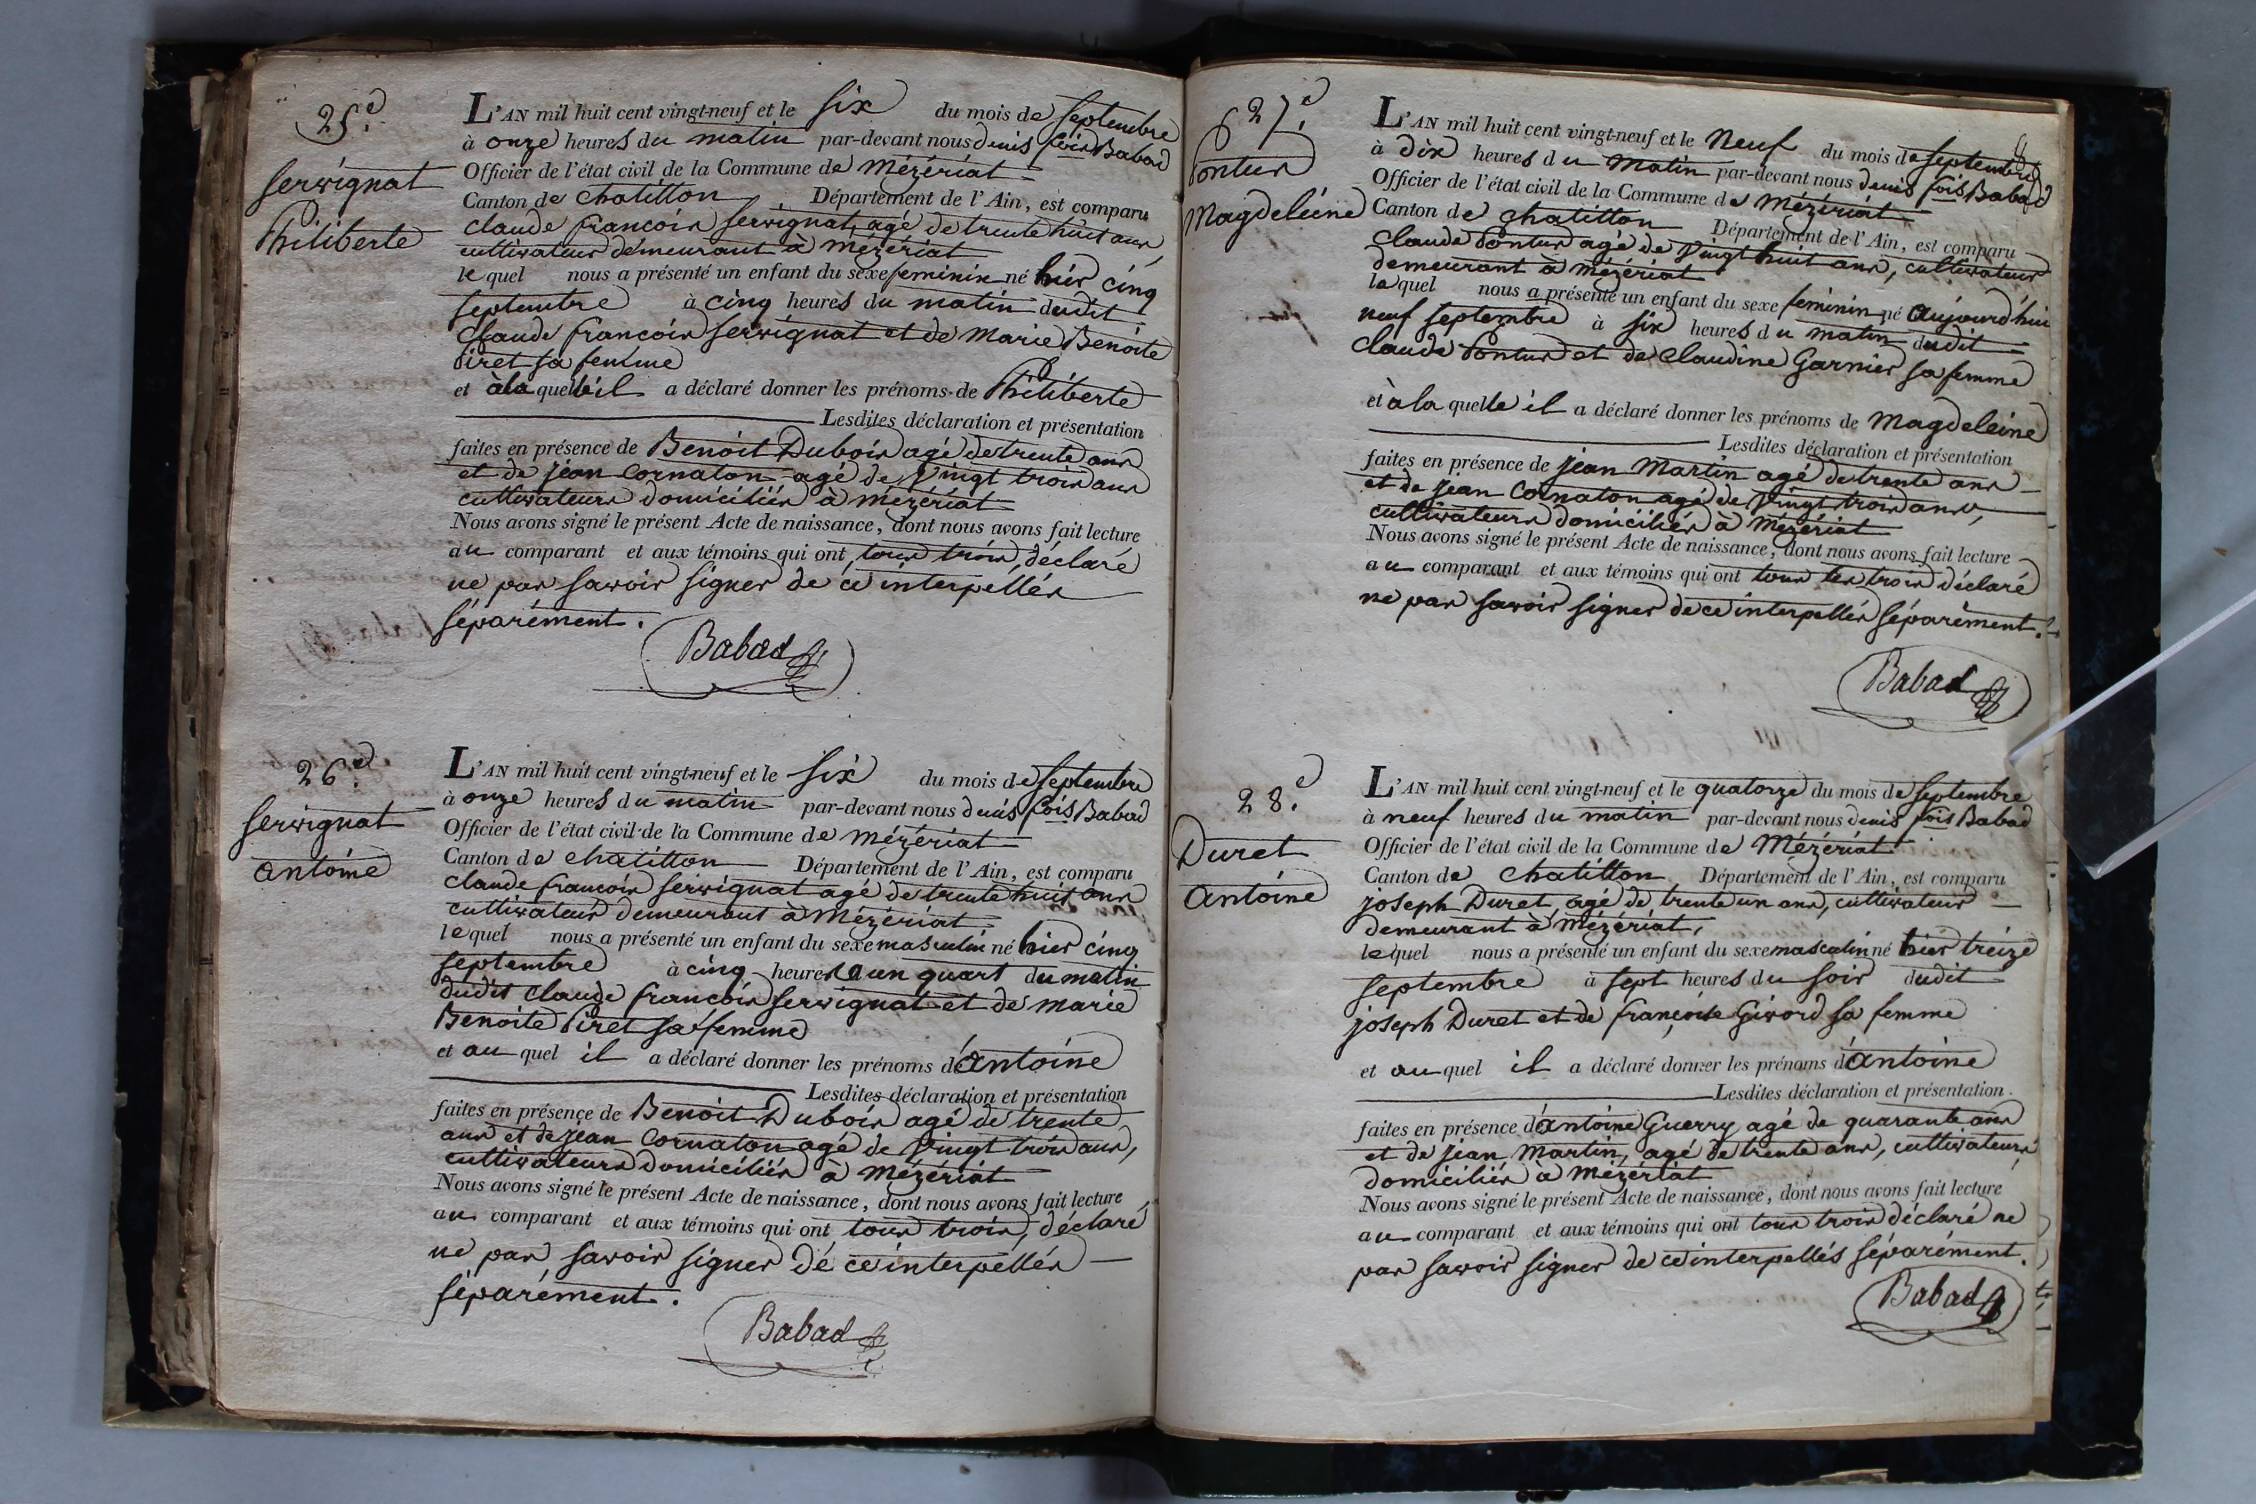 25.e
Servignat
Philiberte
L'AN mil huit cent vingt-neuf et le six du mois de septembre
à onze heures du matin par-devant nous denis fois Babad
Officier de l'état civil de la Commune de Mézériat
Canton de chatillon Département de l'Ain, est comparu
claude francois Servignat, agé de trente huit ans
cultivateur demeurant à Mézériat
lequel nous a présenté un enfant du sexe feminin né hier cinq
septembre à cinq heures du matin dudit
Claude francois Servignat et de Marie Benoite
Piret sa femme
et à la quelle il a déclaré donner les prénoms de Philiberte
Lesdites déclaration et présentation
faites en présence de Benoit Dubois agé de trente ans
et de jean Cornaton agé de vingt trois ans
cultivateurs domiciliés à Mézériat
Nous avons signé le présent Acte de naissance, dont nous avons fait lecture
au comparant et aux témoins qui ont tous trois, déclaré
ne pas savoir signer de ce interpellés
séparément.
Babad
26.e
Servignat
antoine
L'AN mil huit cent vingt-neuf et le six du mois de septembre
à onze heures du matin par-devant nous denis fois Babad
Officier de l'état civil de la Commune de Mézériat
Canton de chatillon Département de l'Ain, est comparu
claude francois Servignat agé de trente huit ans
cultivateur demeurant à Mézériat
lequel nous a présenté un enfant du sexe masculin né hier cinq
septembre à cinq heures un quart du matin
dudit claude francois Servignat et de marie
Benoite Piret sa femme
et au quel il a déclaré donner les prénoms d'antoine
Lesdites déclaration et présentation
faites en présence de Benoit Dubois agé de trente
ans et de jean Cornaton agé de vingt trois ans,
cultivateurs domiciliés à Mézériat
Nous avons signé le présent Acte de naissance, dont nous avons fait lecture
au comparant et aux témoins qui ont tous trois, déclaré
ne pas savoir signer de ce interpellés
séparément.
Babad
27.e
Pontus
Magdeleine
L'AN mil huit cent vingt-neuf et le Neuf du mois de septembre
à dix heures du Matin par-devant nous denis fois Babad
Officier de l'état civil de la Commune de Mézériat
Canton de chatillon Département de l'Ain, est comparu
claude Pontus agé de vingt huit ans, cultivateur
demeurant à Mézériat
lequel nous a présenté un enfant du sexe feminin né aujourd'hui
neuf septembre à six heures du matin dudit
claude Pontus et de claudine Garnier sa femme
et à la quelle il a déclaré donner les prénoms de Magdeleine
Lesdites déclaration et présentation
faites en présence de jean Martin agé de trente ans
et de jean Cornaton agé de vingt trois ans,
cultivateurs domiciliés à Mézériat
Nous avons signé le présent Acte de naissance, dont nous avons fait lecture
au comparant et aux témoins qui ont tous les trois déclaré
ne pas savoir signer de ce interpellés séparément.
Babad
28.e
Duret
antoine
L'AN mil huit cent vingt-neuf et le quatorze du mois de septembre
à neuf heures du matin par-devant nous denis fois Babad
Officier de l'état civil de la Commune de Mézériat
Canton de chatillon Département de l'Ain, est comparu
joseph Duret agé de trente un ans, cultivateur
demeurant à Mézériat,
lequel nous a présenté un enfant du sexe masculin né hier treize
septembre à sept heures du soir dudit
joseph Duret et de françoise Givord sa femme
et au quel il a déclaré donner les prénoms d'antoine
Lesdites déclaration et présentation
faites en présence d'antoine Guerry agé de quarante ans
et de jean Martin, agé de trente ans, cultivateurs
domiciliés à Mézériat
Nous avons signé le présent Acte de naissance, dont nous avons fait lecture
au comparant et aux témoins qui ont tous trois déclaré ne
pas savoir signer de ce interpellés séparément.
Babad